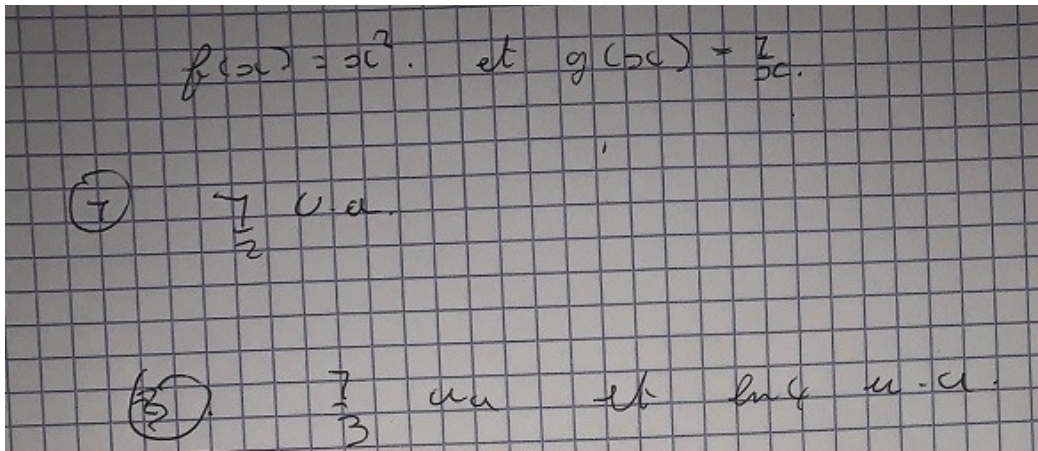 f(x) = x². et g(x) = 1/x.
① 1/2 u.a.
③ 1/3 u.a et ln 4 u.a.